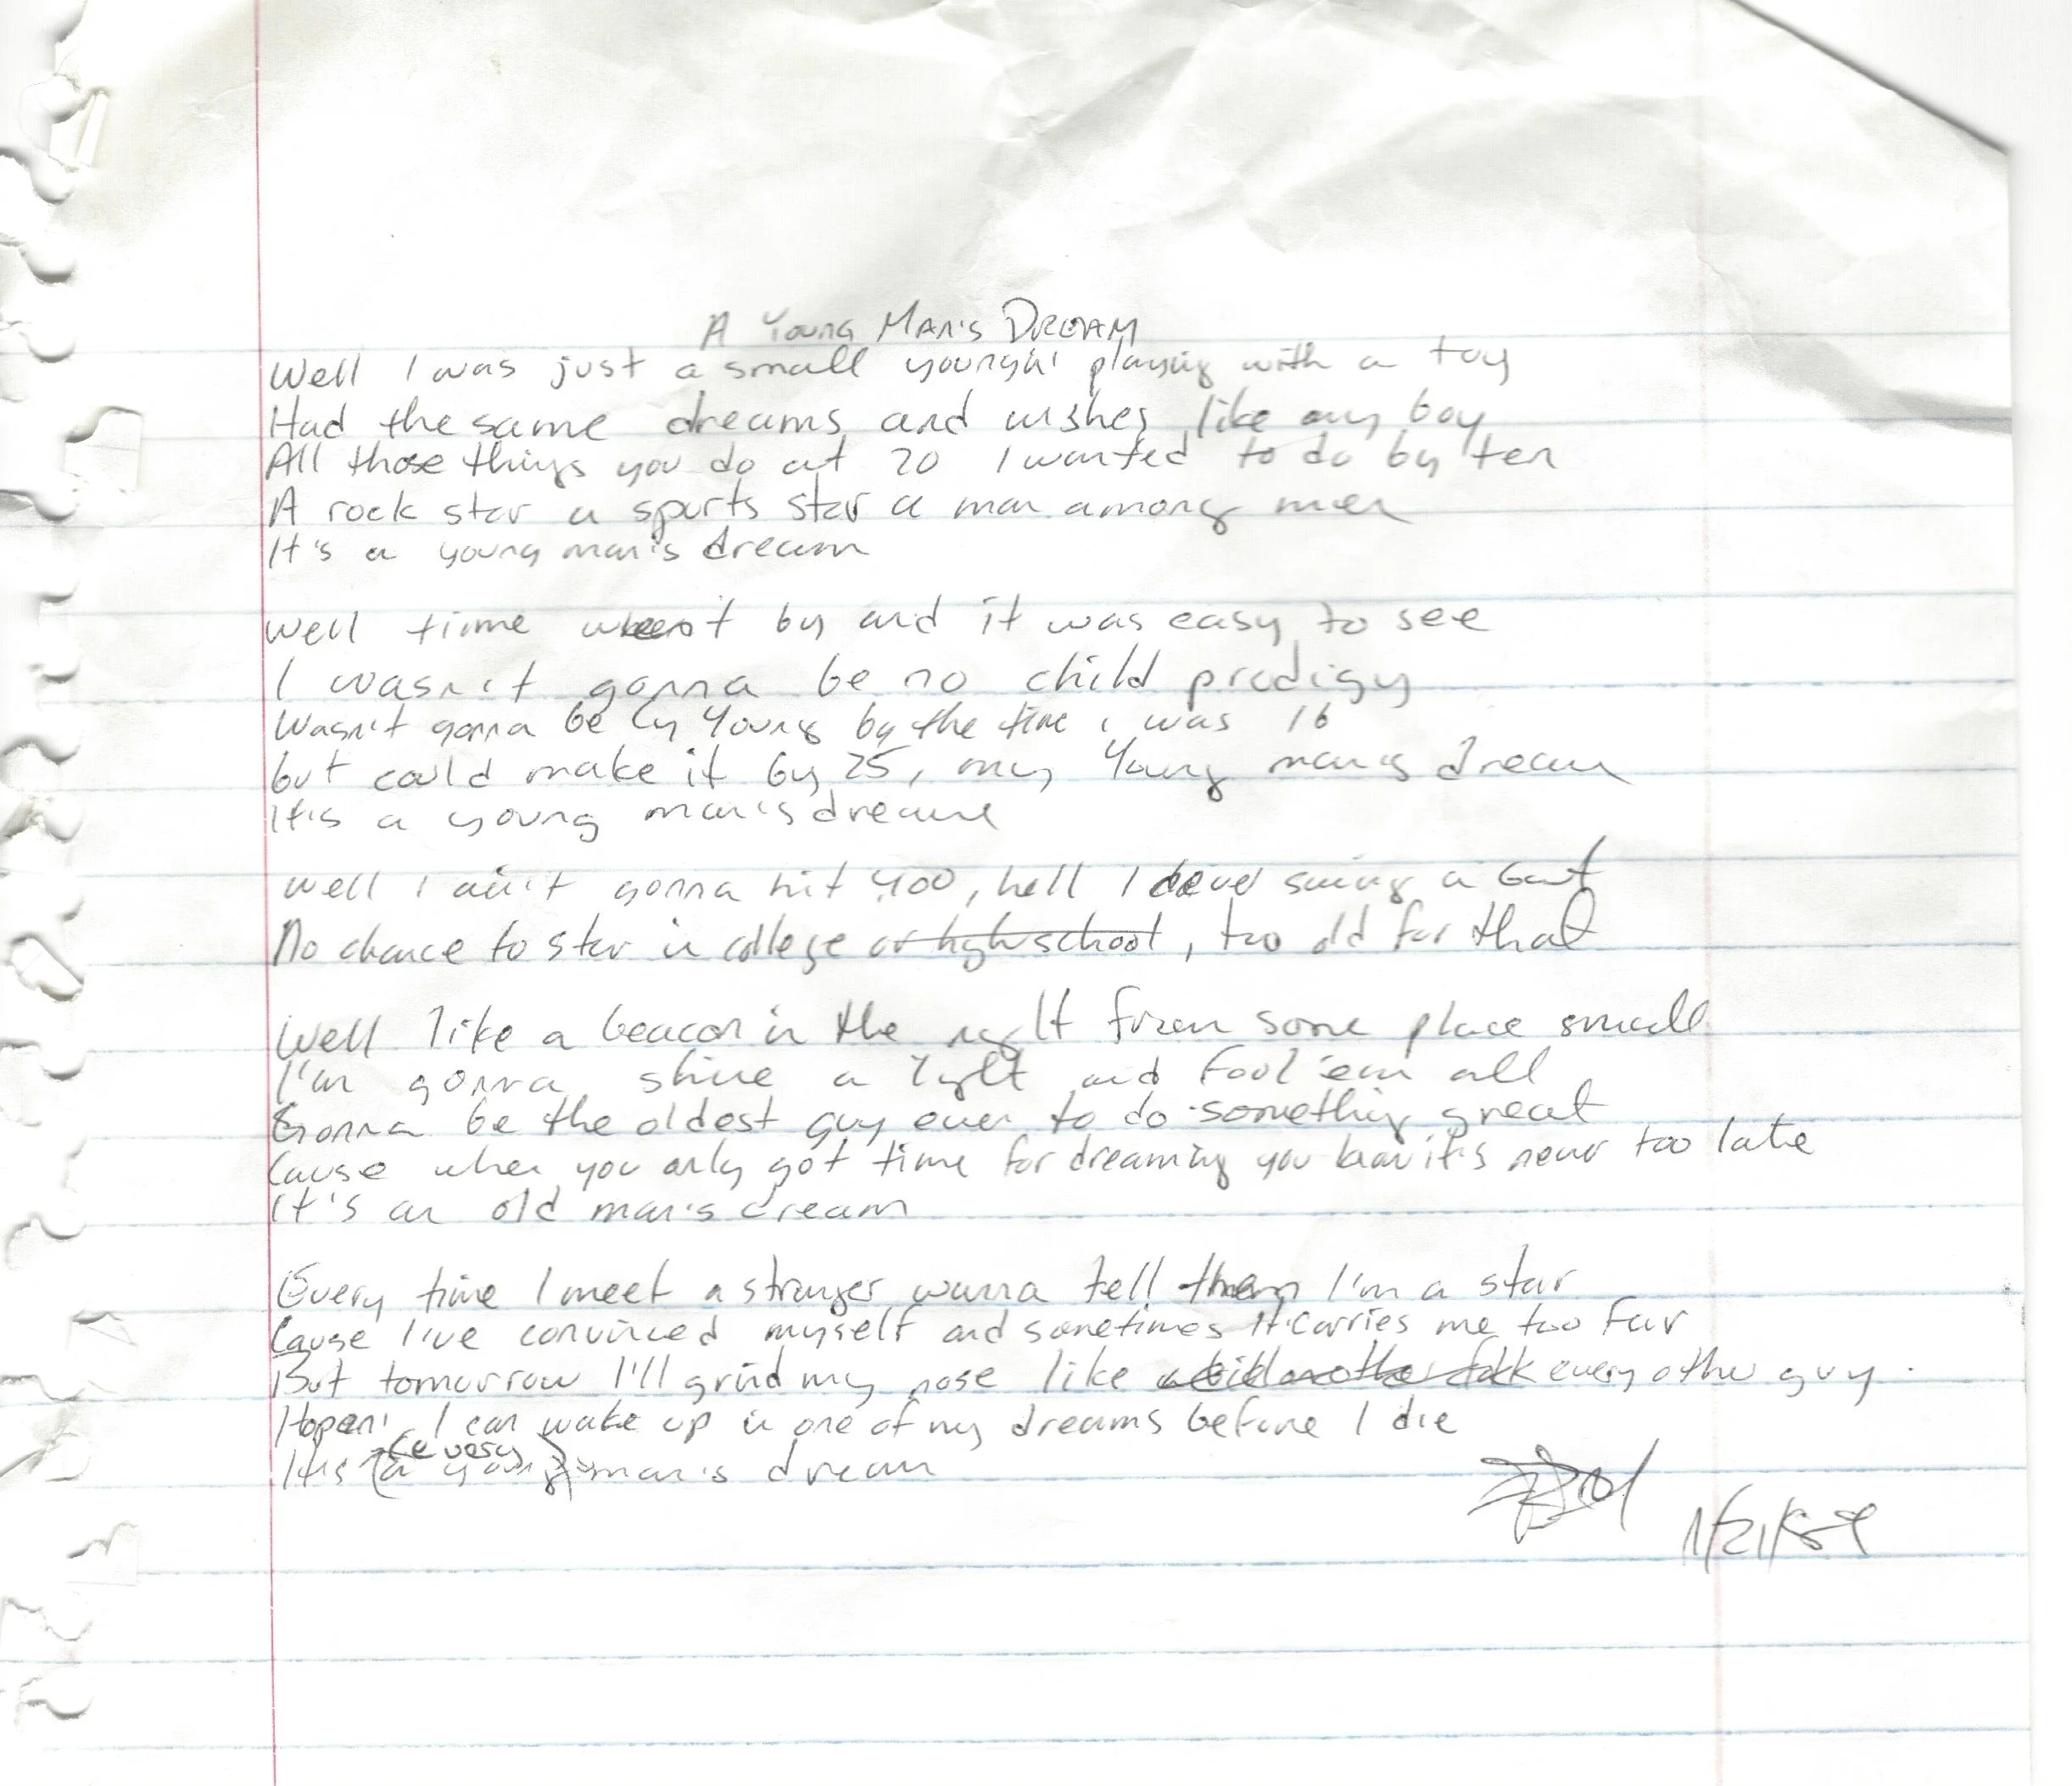 A Young Man's Dream
Well I was just a small youngin' playing with a toy
Had the same dreams and wishes like any boy
All those things you do at 20 I wanted to do by ten
A rock star a sports star a man among men
It's a young man's dream
Well time went by and it was easy to see
I wasn't gonna be no child prodigy
Wasn't gonna be Cy Young by the time i was 16
but could make it by 25, my Young man's dream
It's a young man's dream
Well I ain't gonna hit .400, hell I never swing a bat
No chance to star in college or high school, too old for that
Well like a beacon in the night from some place small
I'm gonna shine a light and fool 'em all
Gonna be the oldest guy ever to do something great
Cause when you only got time for dreaming you know it's never too late
It's an old man's dream
Every time I meet a stranger wanna tell them I'm a star
Cause I've convinced myself and sometimes it carries me too far
But tomorrow I'll grind my nose like every other guy
Hopen' I can wake up in one of my dreams before I die
(every)
It's (a young) man's dream